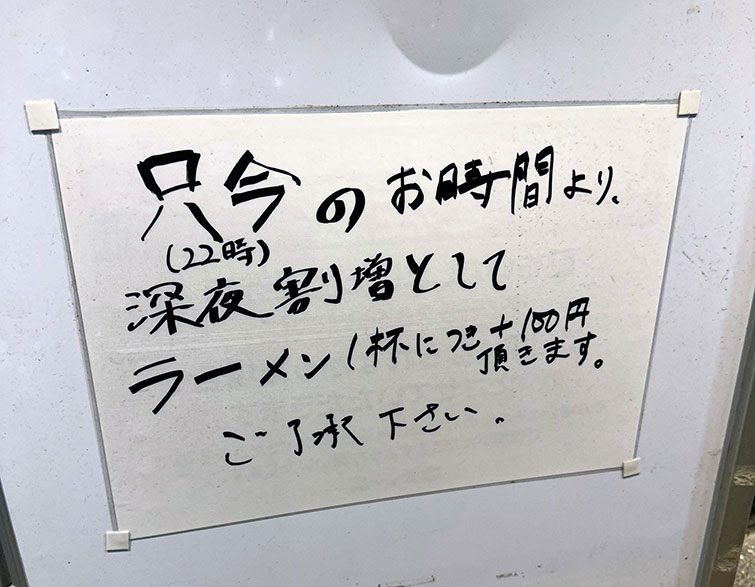 只今のお時間より、
(22時)
深夜割増として
ラーメン1杯につき+100円
頂きます。
ご了承下さい。